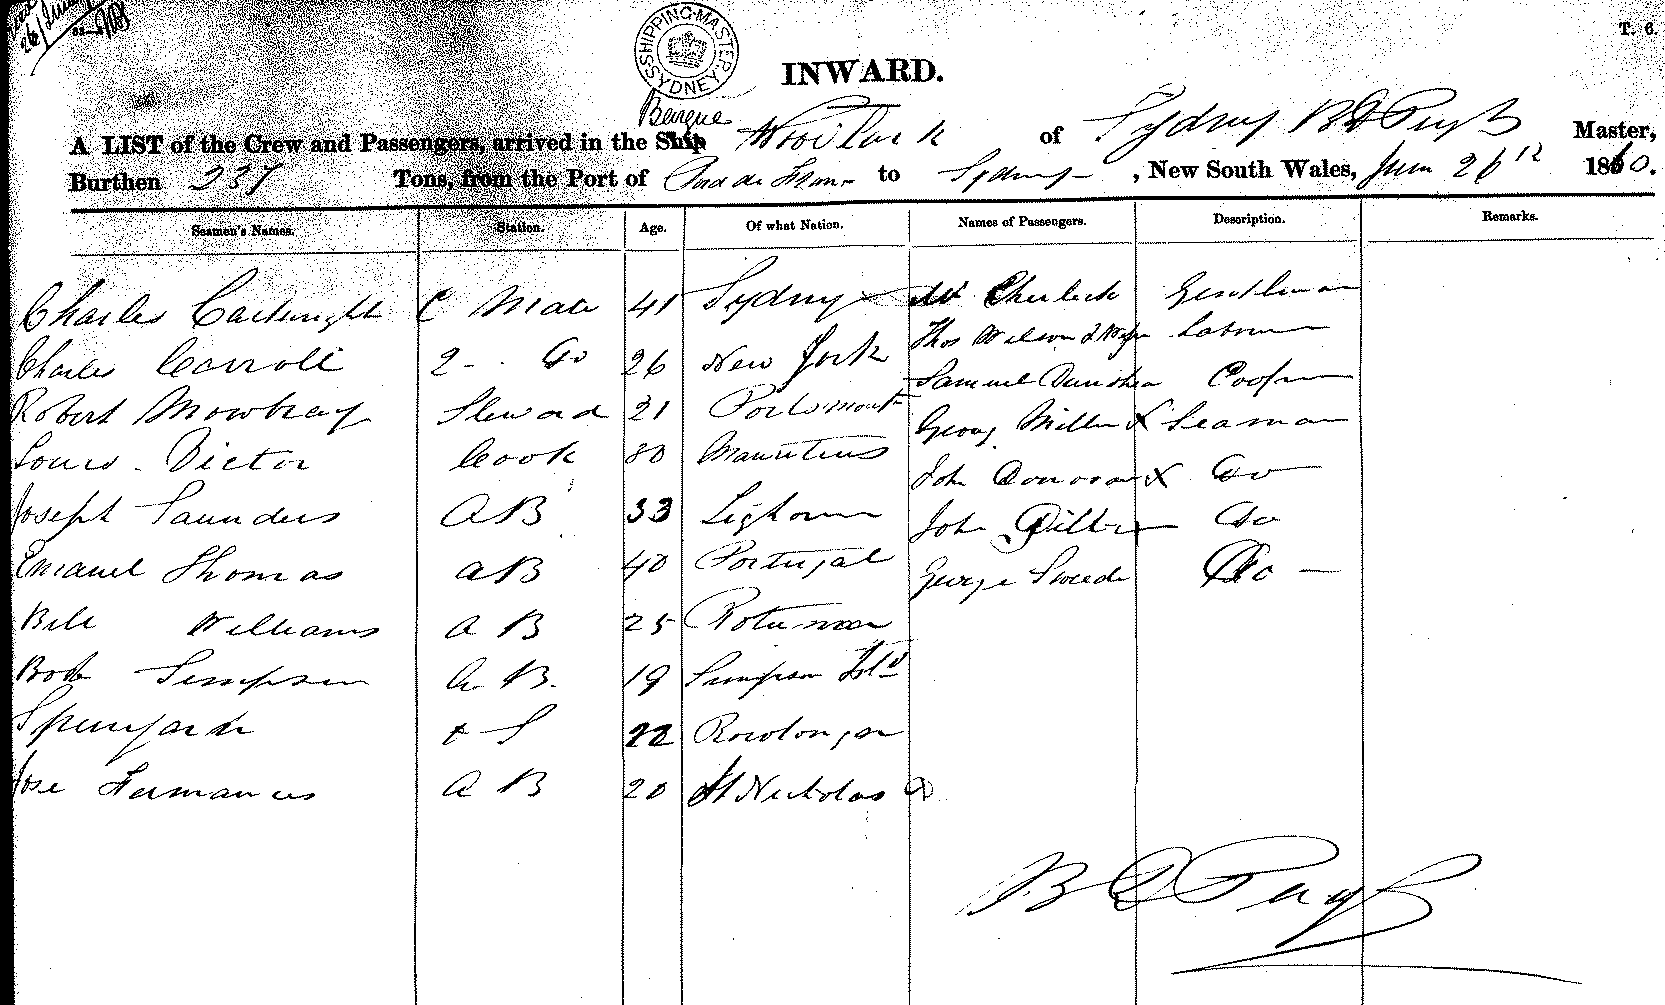 T. 6.
SHIPPING MASTERS SYDNEY
INWARD.
Barque
A LIST of the Crew and Passengers, arrived in the Ship Woodlark of Sydney B D Pugh Master,
Burthen 237 Tons, from the Port of to Sydney, New South Wales, June 26th 1860.
Seamen's Names. Station. Age. Of what Nation. Names of Passengers. Description. Remarks.
Charles Cartwright C Mate 41 Sydney Mr Cherlick Gentleman
Charles Carroll 2 - Do 26 New York Thos Wilson & Wife Labourer
Robert Mowbray Steward 21 Portsmouth Samuel Cooper
Louis Victor Cook 30 Mauritius George Miller X Seaman
Joseph Saunders AB 33 John Donovan X Do
Emanuel Thomas AB 40 Portugal John Do
Bill Williams AB 25 Rotumah George Swede Do
Bob Simpson A B. 19 Simpson Isld
22
Jose A B 20 St Nicholas
B D Pugh